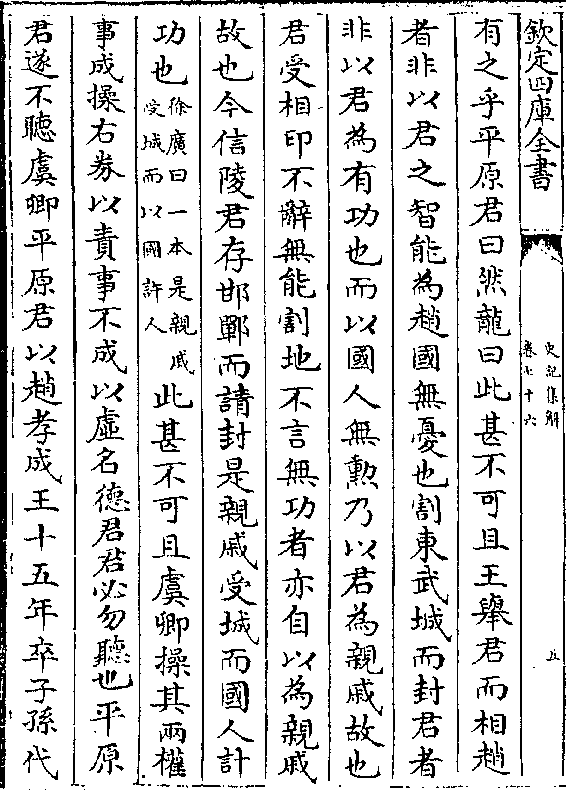 欽定四庫全書
史記集解
卷七十六
五
有之乎平原君曰然龍曰此甚不可且王舉君而相趙
者非以君之智能為趙國無憂也割東武城而封君者
非以君為有功也而以國人無勲乃以君為親戚故也
君受相印不辭無能割地不言無功者亦自以為親戚
故也今信陵君存邯鄲而請封是親戚受城而國人計
功也徐廣曰一本是親戚受城而以國許人此甚不可且虞卿操其兩權
事成操右劵以責事不成以虛名德君君必勿聽也平原
君遂不聽虞卿平原君以趙孝成王十五年卒子孫代